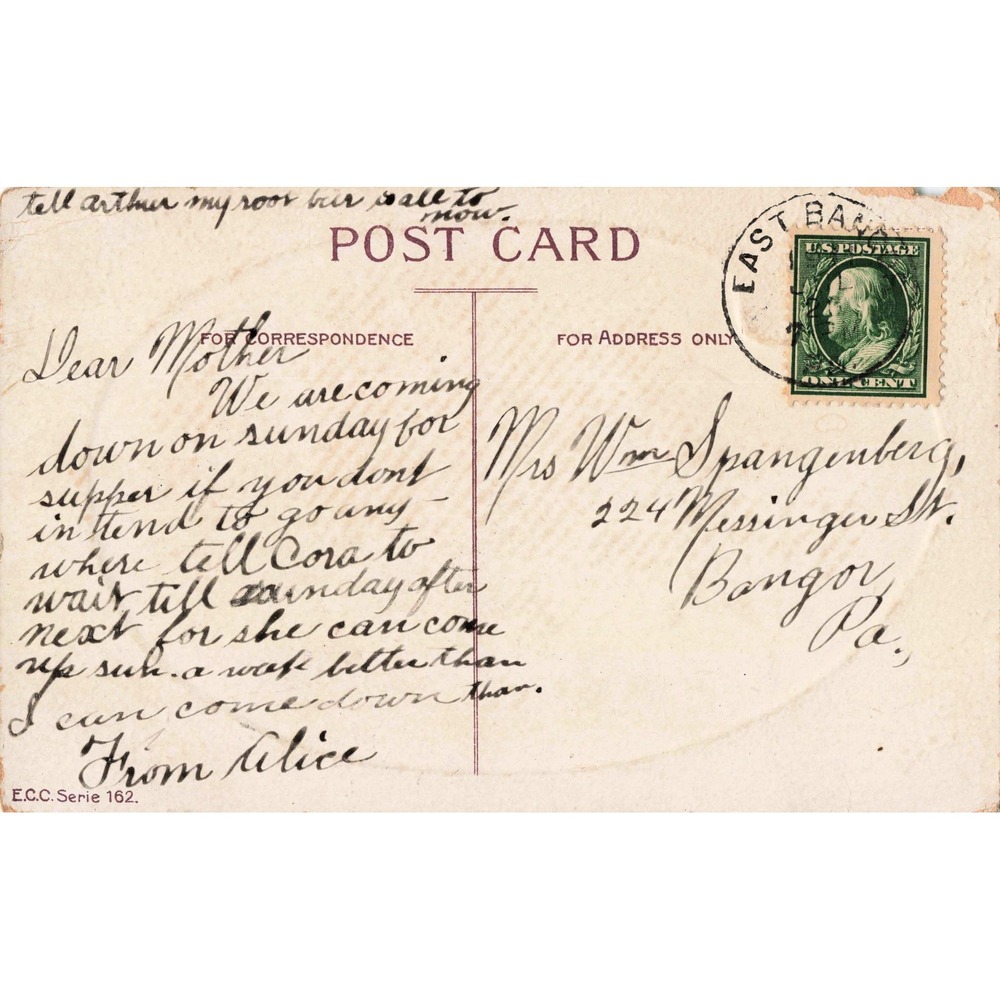 tell arthur my root beir is all to
now.
POST CARD
FOR CORRESPONDENCE
FOR ADDRESS ONLY
Dear Mother
We are coming
down on sunday for
supper if you dont
in tend to go any
where tell Cora to
wait till sunday after
next for she can come
up sun. a week better than
I can come down than.
From Alice
E.C.C. Serie 162.
EAST BANG
U.S. POSTAGE
ONE CENT
Mrs Wm Spangenberg,
224 Messinger St.
Bangor,
Pa.,